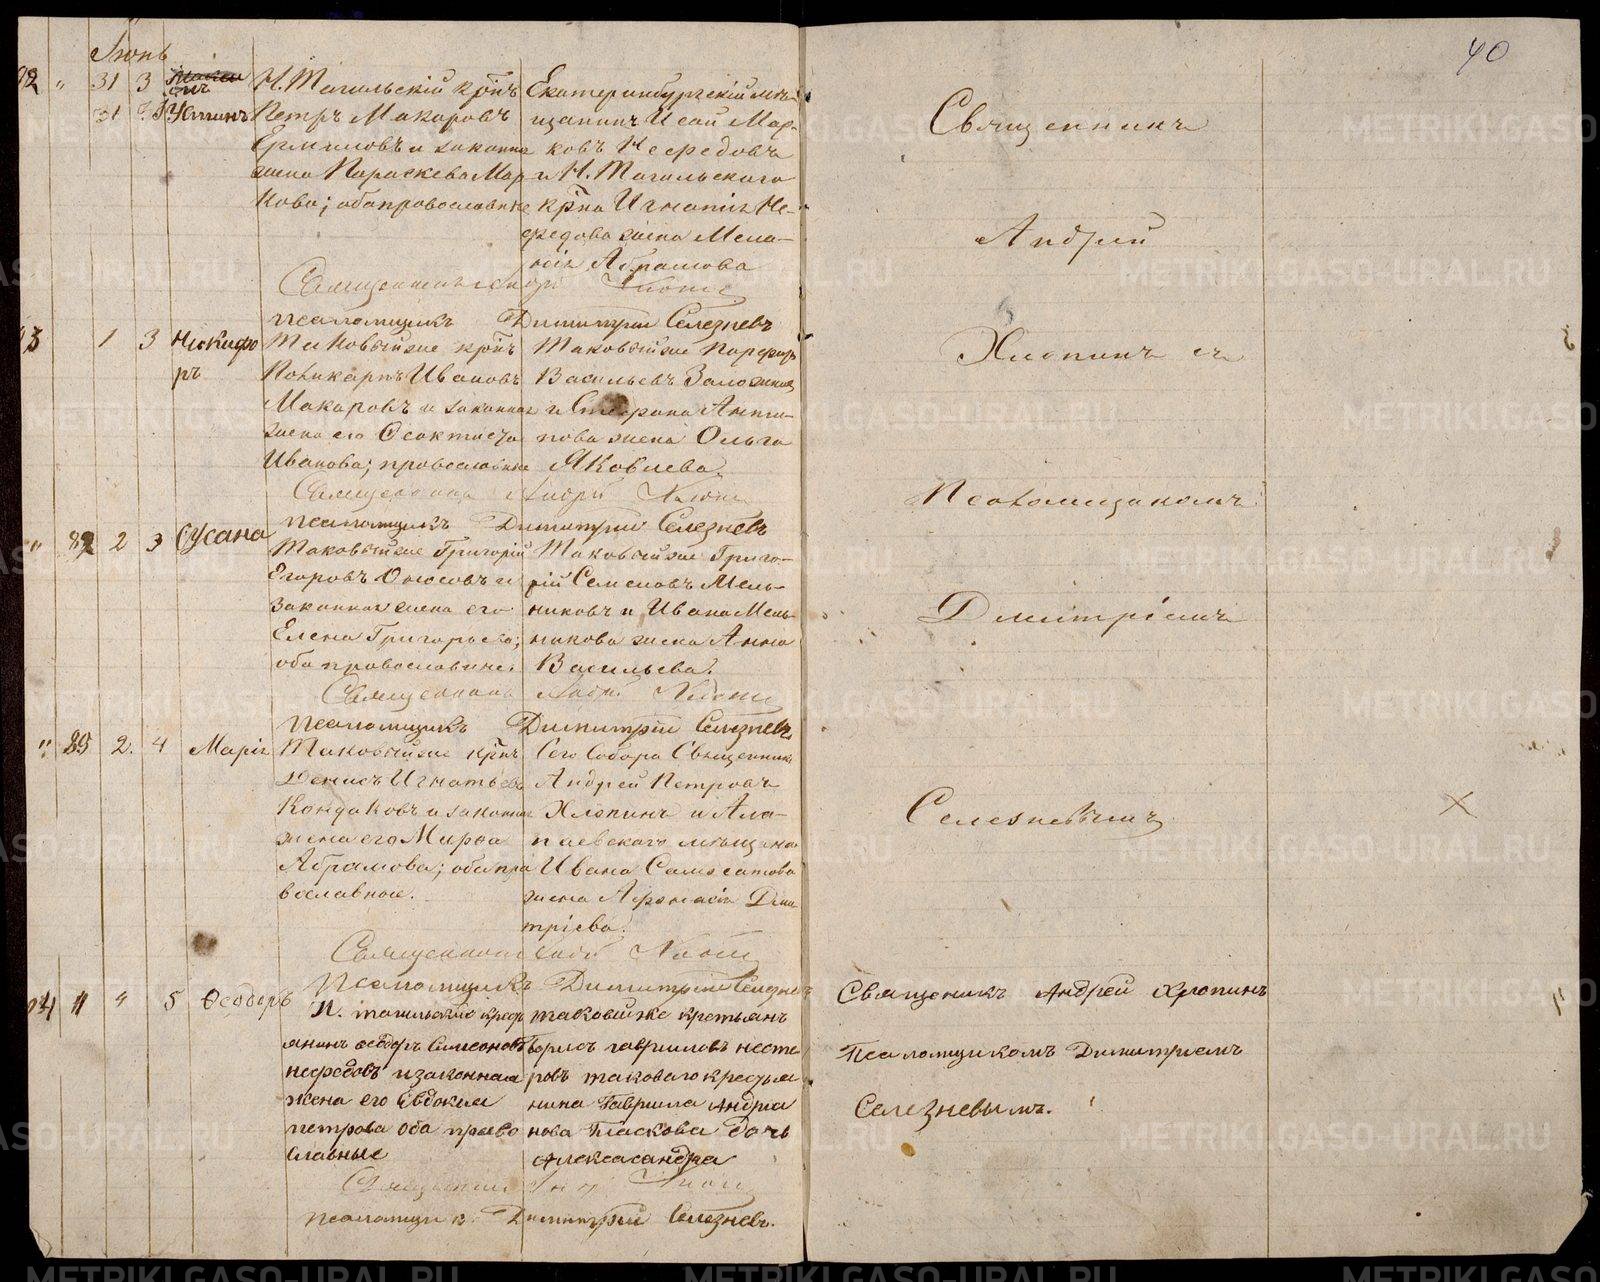 Іюнь
40
92 " 31 3
31 Устинъ
Н. Тагильскій крнъ
Петръ Макаровъ
Ермиловъ и законная
жена Параскева Мар
кова; оба православные
Екатеринбургскій мѣ-
щанинъ Исай Мар-
ковъ Нефедовъ
и Н. Тагильскаго
крна Игнатія Не-
федова жена Мела-
нія Абрамова
Псаломщикъ Димитрій Селезневъ
93 1 3 Никифо
ръ
Таковый же крнъ
Поликарпъ Ивановъ
Макаровъ и законная
жена его Ѳеоктиста
Иванова; православные
Таковый же Порфирій
Васильевъ
и Стефана Анти-
пова жена Ольга
Яковлева.
Священникъ Андрей
Псаломщикъ Димитрій Селезневъ
" 2 3 Сусана
Таковый же Григорій
Егоровъ и
законная жена его
Елена Григорьева;
оба православные.
Таковый же Григо-
рій Семеновъ Мель-
никовъ и Ивана Мель-
никова жена Анна
Васильева.
Священникъ
Псаломщикъ Димитрій Селезневъ
" 2 4 Марія
Таковый же крнъ
Денисъ Игнатьевъ
Кондаковъ и законная
жена его Марѳа
Абрамова; оба пра
вославные.
Сего Собора Священникъ
Андрей Петровъ
Хлопинъ и Ала-
паевскаго мѣщанина
Ивана Самосатова
жена Аѳанасія Дими
тріева.
Псаломщикъ Димитрій Селезневъ
94 4 5 Ѳеодоръ
Н. тагильскій кресть
янинъ Ѳеодоръ Симеоновъ
нефедовъ и законная
жена его Евдокия
петрова оба право
славные
таковый же крестьянъ
Борисъ гавриловъ несте
ровъ таковаго крестья
нина Гавриила Андрїа
нова Пласкова дочь
Александра
Псаломщикъ Димитрій Селезневъ.
Священникъ
Андрей
Хлопинъ съ
Псаломщикомъ
Димитріемъ
Селезневымъ
Священикъ Андрей Хлопинъ
Псаломщикомъ Димитриемъ
Селезневымъ.
METRIKI.GASO-URAL.RU